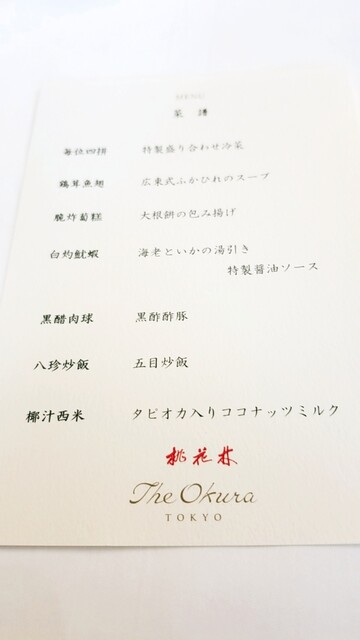 MENU
菜 譜
每位四拼 特製盛り合わせ冷菜
鶏茸魚翅 広東式ふかひれのスープ
脆炸蔔糕 大根餅の包み揚げ
白灼魷蝦 海老といかの湯引き
特製醤油ソース
黒醋肉球 黒酢酢豚
八珍炒飯 五目炒飯
椰汁西米 タピオカ入りココナッツミルク
桃花林
The Okura
TOKYO